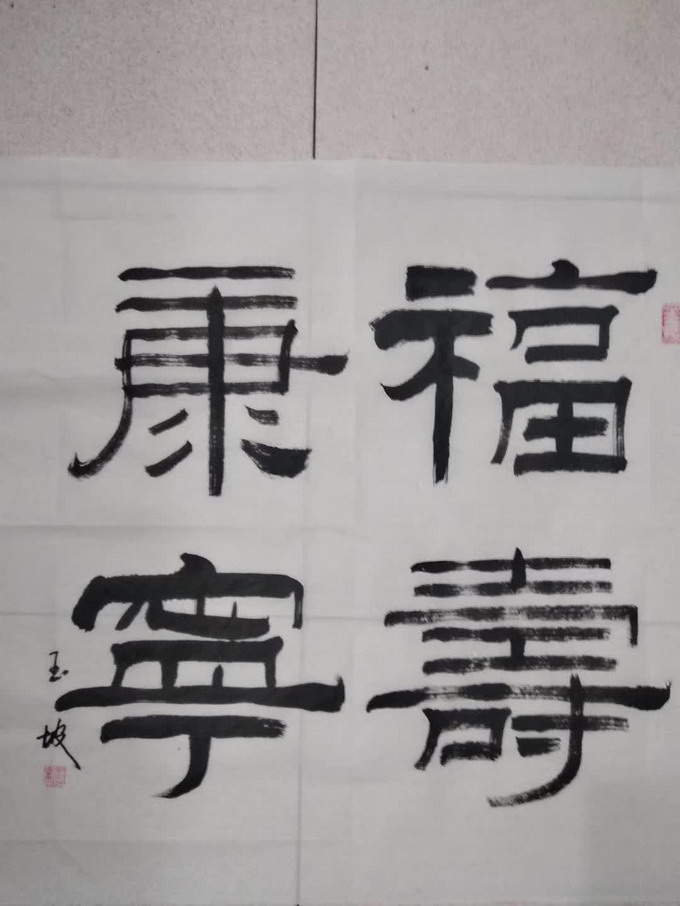 福壽
康寧
玉坡